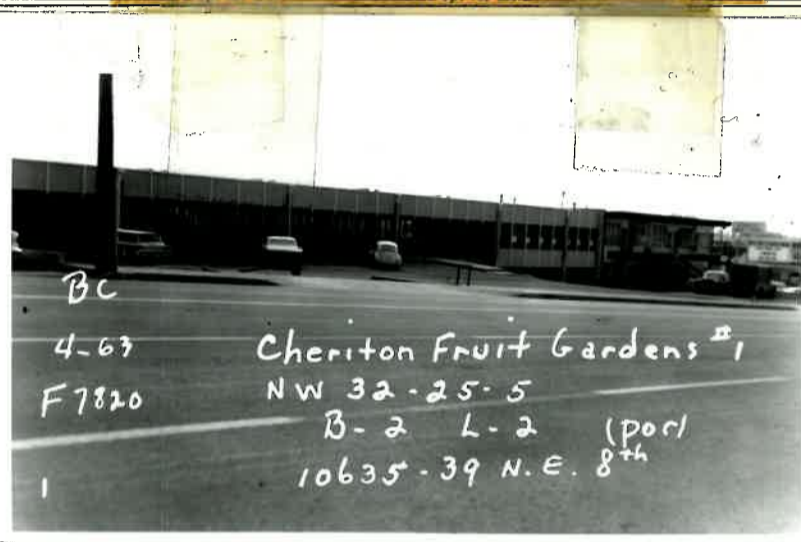 BC
4-63
F7820
1
Cheriton Fruit Gardens #1
NW 32-25-5
B-2 L-2 (por)
10635-39 N.E. 8th